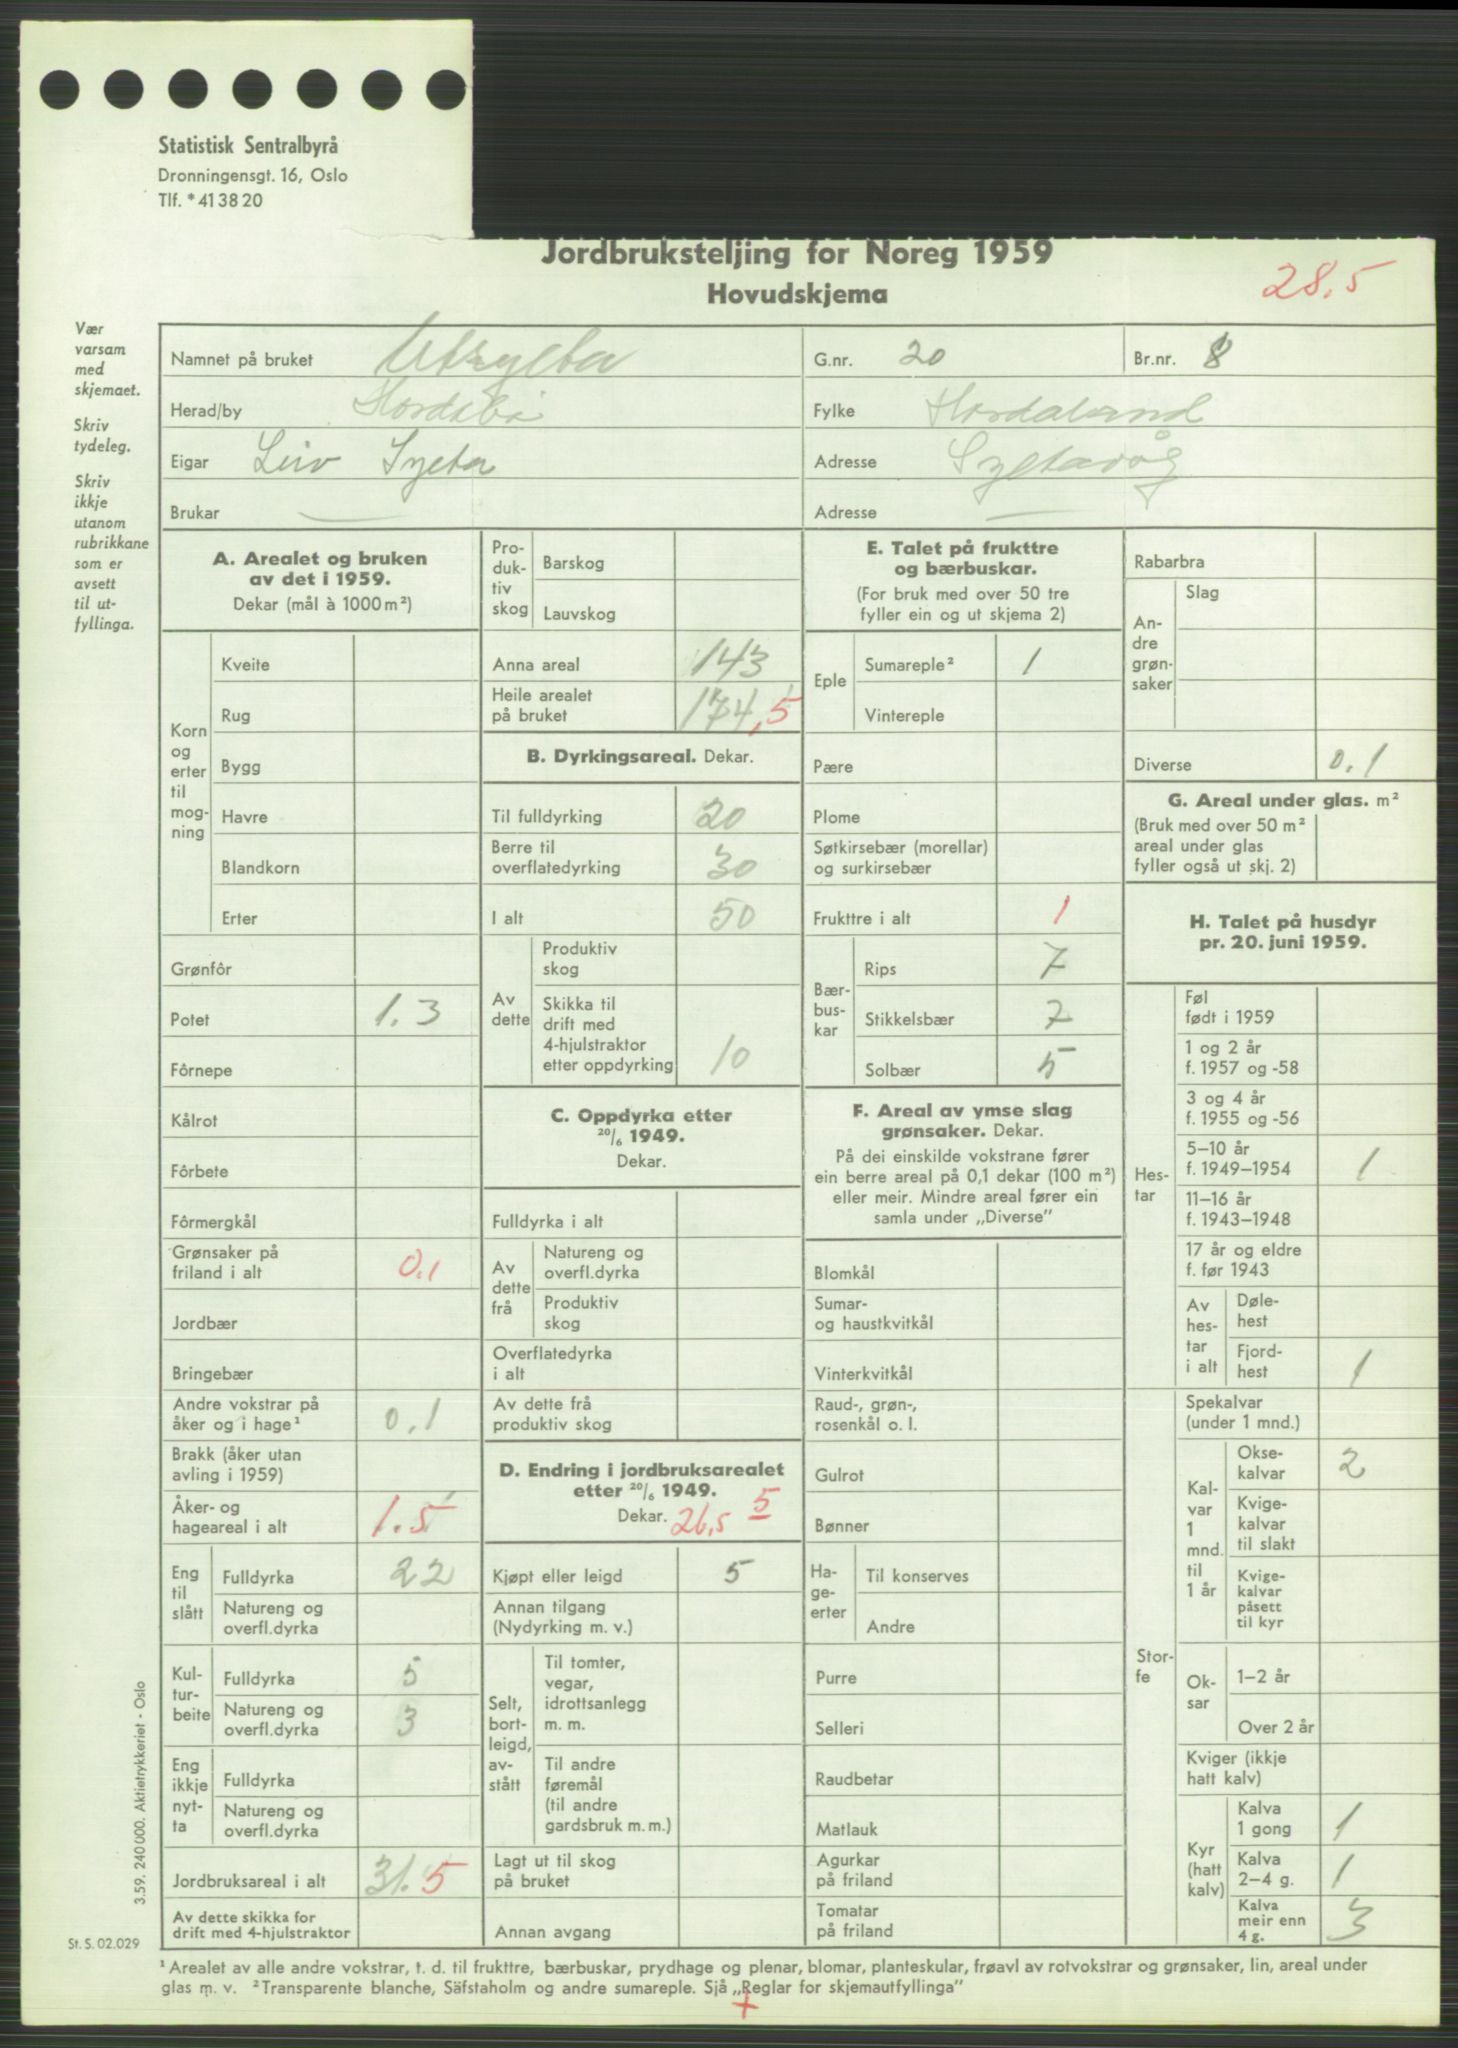 Statistisk Sentralbyrå
Dronningensgt. 16, Oslo
Tlf. *41 38 20
Jordbruksteljing for Noreg 1959
Hovudskjema
28,5
Vær varsam med skjemaet.
Skriv tydeleg.
Skriv ikkje utanom rubrikkane som er avsett til utfyllinga.
Namnet på bruket G.nr. 20 Br.nr. 8
Herad/by Fylke Hordaland
Eigar Leiv Sylta Adresse Syltavåg
Brukar — Adresse —
A. Arealet og bruken av det i 1959.
Dekar (mål à 1000 m²)
Korn og erter til mogning
Kveite
Rug
Bygg
Havre
Blandkorn
Erter
Grønfôr
Potet 1.3
Fôrnepe
Kålrot
Fôrbete
Fôrmergkål
Grønsaker på friland i alt 0.1
Jordbær
Bringebær
Andre vokstrar på åker og i hage¹ 0.1
Brakk (åker utan avling i 1959)
Åker- og hageareal i alt 1.5
Eng til slått
Fulldyrka 22
Natureng og overfl.dyrka
Kulturbeite
Fulldyrka 5
Natureng og overfl.dyrka 3
Eng ikkje nytta
Fulldyrka
Natureng og overfl.dyrka
Jordbruksareal i alt 31.5
Av dette skikka for drift med 4-hjulstraktor
Produktiv skog
Barskog
Lauvskog
Anna areal 143
Heile arealet på bruket 174,5
B. Dyrkingsareal. Dekar.
Til fulldyrking 20
Berre til overflatedyrking 30
I alt 50
Av dette
Produktiv skog
Skikka til drift med 4-hjulstraktor etter oppdyrking 10
C. Oppdyrka etter 20/6 1949.
Dekar.
Fulldyrka i alt
Av dette frå
Natureng og overfl.dyrka
Produktiv skog
Overflatedyrka i alt
Av dette frå produktiv skog
D. Endring i jordbruksarealet etter 20/6 1949.
Dekar. 26,5 5
Kjøpt eller leigd 5
Annan tilgang (Nydyrking m. v.)
Selt, bortleigd, avstått
Til tomter, vegar, idrottsanlegg m. m.
Til andre føremål (til andre gardsbruk m. m.)
Lagt ut til skog på bruket
Annan avgang
E. Talet på frukttre og bærbuskar.
(For bruk med over 50 tre fyller ein og ut skjema 2)
Eple
Sumareple² 1
Vintereple
Pære
Plome
Søtkirsebær (morellar) og surkirsebær
Frukttre i alt 1
Bærbuskar
Rips 7
Stikkelsbær 7
Solbær 5
F. Areal av ymse slag grønsaker. Dekar.
På dei einskilde vokstrane fører ein berre areal på 0,1 dekar (100 m²) eller meir. Mindre areal fører ein samla under „Diverse”
Blomkål
Sumar- og haustkvitkål
Vinterkvitkål
Raud-, grøn-, rosenkål o. l.
Gulrot
Bønner
Hageerter
Til konserves
Andre
Purre
Selleri
Raudbetar
Matlauk
Agurkar på friland
Tomatar på friland
Rabarbra
Andre grønsaker
Slag
Diverse 0.1
G. Areal under glas. m²
(Bruk med over 50 m² areal under glas fyller også ut skj. 2)
H. Talet på husdyr pr. 20. juni 1959.
Hestar
Føl født i 1959
1 og 2 år f. 1957 og -58
3 og 4 år f. 1955 og -56
5–10 år f. 1949–1954 1
11–16 år f. 1943–1948
17 år og eldre f. før 1943
Av hestar i alt
Dølehest
Fjordhest 1
Storfe
Spekalvar (under 1 mnd.)
Kalvar 1 mnd. til 1 år
Oksekalvar 2
Kvigekalvar til slakt
Kvigekalvar påsett til kyr
Oksar
1–2 år
Over 2 år
Kviger (ikkje hatt kalv)
Kyr (hatt kalv)
Kalva 1 gong 1
Kalva 2–4 g. 1
Kalva meir enn 4 g. 3
3.59. 240 000. Aktietrykkeriet - Oslo
St. S. 02.029
¹ Arealet av alle andre vokstrar, t. d. til frukttre, bærbuskar, prydhage og plenar, blomar, planteskular, frøavl av rotvokstrar og grønsaker, lin, areal under
glas m. v. ² Transparente blanche, Säfstaholm og andre sumareple. Sjå „Reglar for skjemautfyllinga”
+